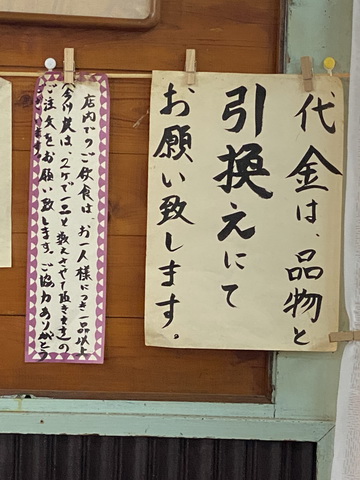 代金は、品物と
引換えにて
お願い致します。
店内でのご飲食は、お一人様につき一品以上
は、2ケで一品と数えさせて頂きます)の
ご注文をお願い致します。ご協力ありがとう
ございます。